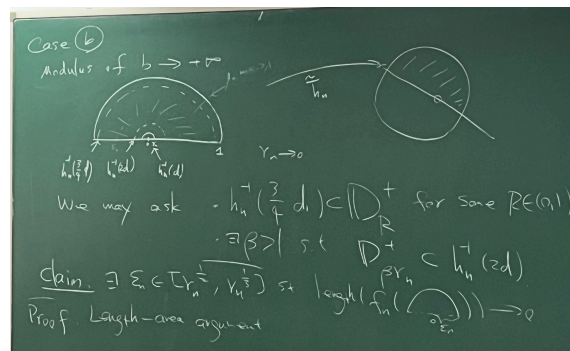 Case ⓑ
Modulus of b → +∞
h̃ₙ
1
hₙ⁻¹(3/4 d) hₙ⁻¹(2d) hₙ⁻¹(d)
rₙ → 0
We may ask · hₙ⁻¹(3/4 d) ⊂ 𝔻⁺_R for some R∈(0,1)
· ∃ β>1 s.t 𝔻⁺_{βrₙ} ⊂ hₙ⁻¹(2d)
Claim. ∃ ξₙ ∈ [rₙ^{1/2}, rₙ^{1/3}] st length(fₙ( )) → 0
Proof. Length-area argument